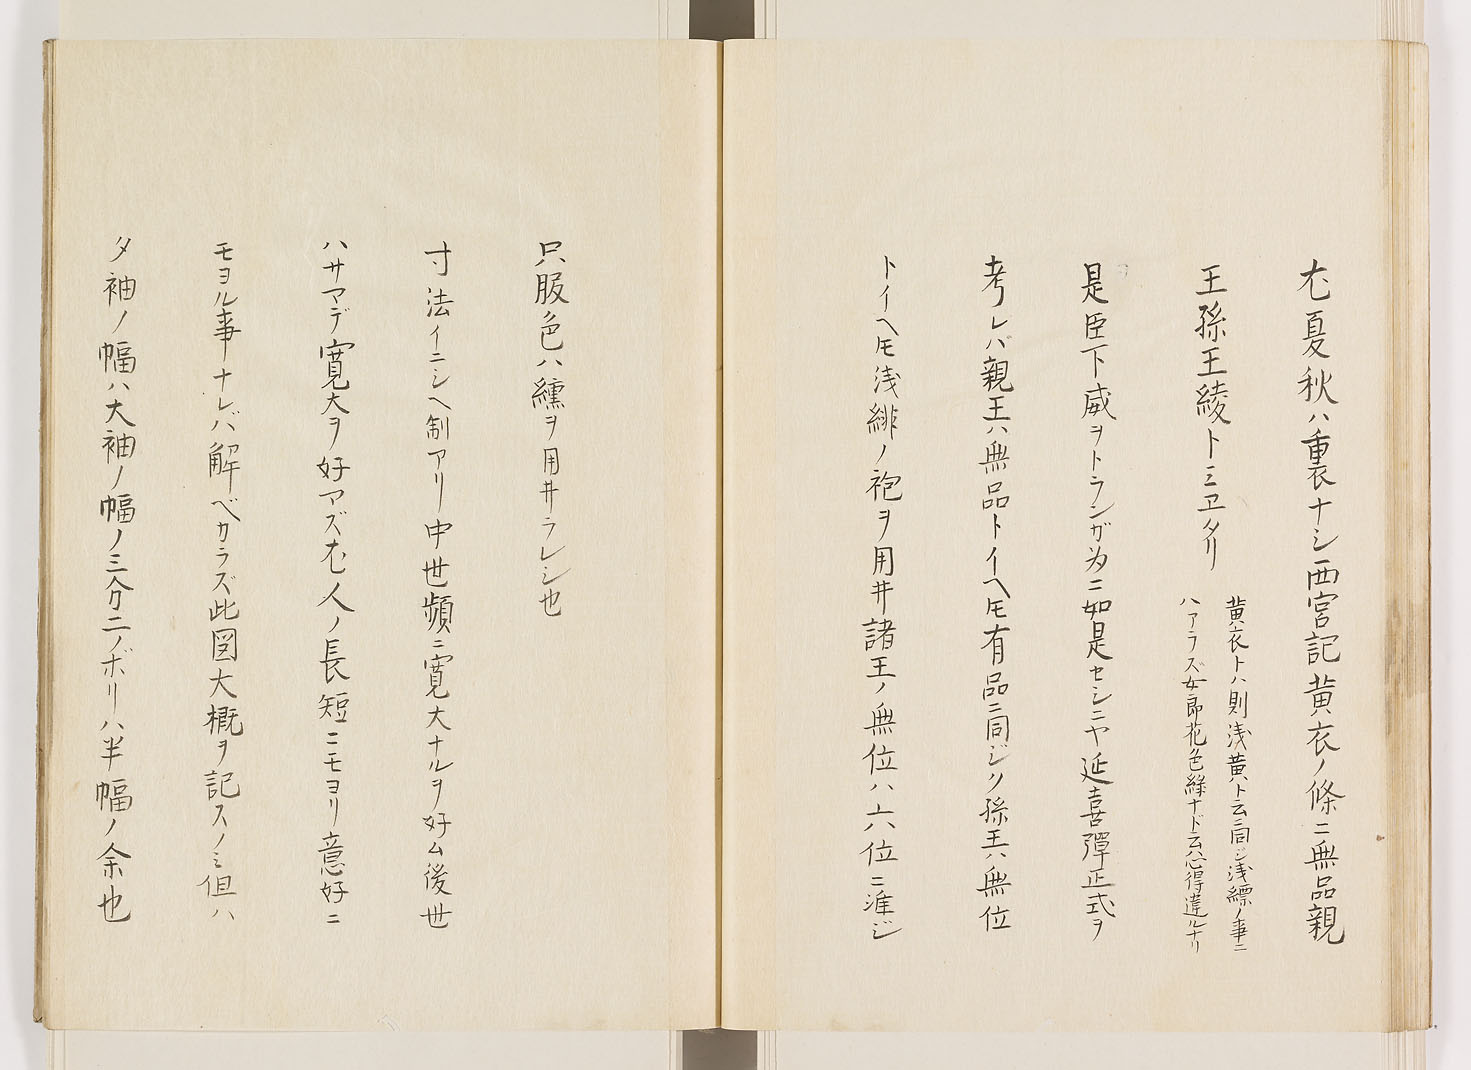 尤夏秋ハ重裏ナシ西宮記黄衣ノ條ニ無品親
王孫王綾トミヱタリ
黄衣トハ則浅黄ト云ニ同ジ浅縹ノ事ニ
ハアラズ女郎花色緑ナド云ハ心得違ルナリ
是臣下威ヲトランガ為ニ如是セシニヤ延喜彈正式ヲ
考レバ親王ハ無品トイヘ𪜈有品ニ同ジク孫王ハ無位
トイヘ𪜈浅緋ノ袍ヲ用井諸王ノ無位ハ六位ニ准ジ
只服色ハ纁ヲ用井ラレシ也
寸法イニシヘ制アリ中世頻ニ寛大ナルヲ好ム後世
ハサマデ寛大ヲ好マズ尤人ノ長短ニモヨリ意好ニ
モヨル事ナレバ解ベカラズ此図大概ヲ記スノミ但ハ
タ袖ノ幅ハ大袖ノ幅ノ三分二ノボリハ半幅ノ余也